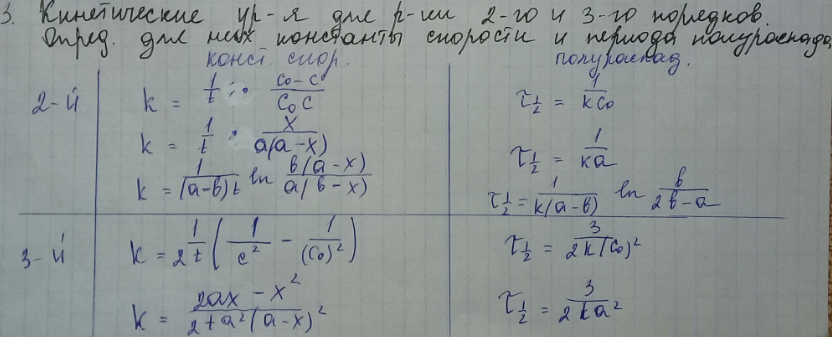 3. Кинетические ур-я для р-ии 2-го и 3-го порядков.
Опред. для них константы скорости и периода полураспада
конст. скор. полураспад.
2-й k = 1/t · (C₀ - C)/(C₀C) τ½ = 1/(kC₀)
k = 1/t · x/(a(a-x)) τ½ = 1/(ka)
k = 1/((a-b)t) ln (b(a-x))/(a(b-x)) τ½ = 1/(k(a-b)) ln b/(2b-a)
3-й k = 1/(2t) (1/c² - 1/(C₀)²) τ½ = 3/(2k(C₀)²)
k = (2ax - x²)/(2ta²(a-x)²) τ½ = 3/(2ka²)